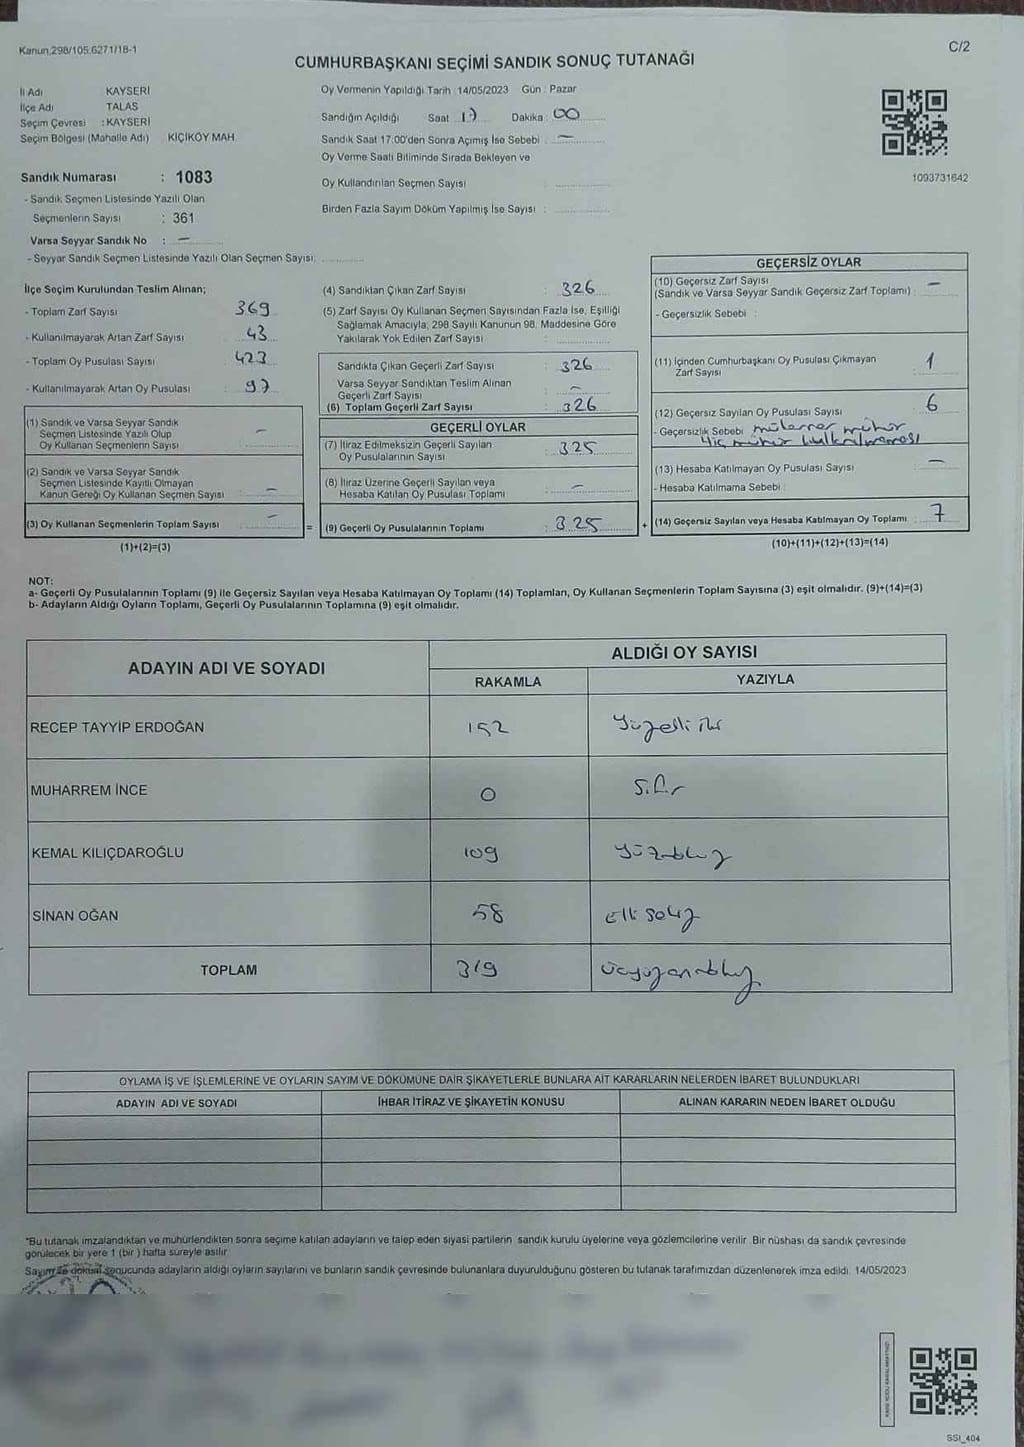 Kanun.298/105.6271/18-1
C/2
CUMHURBAŞKANI SEÇİMİ SANDIK SONUÇ TUTANAĞI
İl Adı KAYSERİ
İlçe Adı TALAS
Seçim Çevresi : KAYSERİ
Seçim Bölgesi (Mahalle Adı) KİÇİKÖY MAH.
Sandık Numarası : 1083
- Sandık Seçmen Listesinde Yazılı Olan
Seçmenlerin Sayısı : 361
Varsa Seyyar Sandık No : —
- Seyyar Sandık Seçmen Listesinde Yazılı Olan Seçmen Sayısı:
Oy Vermenin Yapıldığı Tarih : 14/05/2023 Gün : Pazar
Sandığın Açıldığı Saat 17 Dakika : 00
Sandık Saat 17:00'den Sonra Açımış İse Sebebi : —
Oy Verme Saati Bitiminde Sırada Bekleyen ve
Oy Kullandırılan Seçmen Sayısı :
Birden Fazla Sayım Döküm Yapılmış İse Sayısı :
1093731642
İlçe Seçim Kurulundan Teslim Alınan;
- Toplam Zarf Sayısı : 369
- Kullanılmayarak Artan Zarf Sayısı : 43
- Toplam Oy Pusulası Sayısı : 423
- Kullanılmayarak Artan Oy Pusulası : 97
(1) Sandık ve Varsa Seyyar Sandık
Seçmen Listesinde Yazılı Olup
Oy Kullanan Seçmenlerin Sayısı : —
(2) Sandık ve Varsa Seyyar Sandık
Seçmen Listesinde Kayıtlı Olmayan
Kanun Gereği Oy Kullanan Seçmen Sayısı : —
(3) Oy Kullanan Seçmenlerin Toplam Sayısı : —
(1)+(2)=(3)
(4) Sandıktan Çıkan Zarf Sayısı : 326
(5) Zarf Sayısı Oy Kullanan Seçmen Sayısından Fazla İse, Eşitliği
Sağlamak Amacıyla; 298 Sayılı Kanunun 98. Maddesine Göre
Yakılarak Yok Edilen Zarf Sayısı :
Sandıkta Çıkan Geçerli Zarf Sayısı : 326
Varsa Seyyar Sandıktan Teslim Alınan
Geçerli Zarf Sayısı : —
(6) Toplam Geçerli Zarf Sayısı : 326
GEÇERLİ OYLAR
(7) İtiraz Edilmeksizin Geçerli Sayılan
Oy Pusulalarının Sayısı : 325
(8) İtiraz Üzerine Geçerli Sayılan veya
Hesaba Katılan Oy Pusulası Toplamı : —
= (9) Geçerli Oy Pusulalarının Toplamı : 325
GEÇERSİZ OYLAR
(10) Geçersiz Zarf Sayısı
(Sandık ve Varsa Seyyar Sandık Geçersiz Zarf Toplamı) : —
- Geçersizlik Sebebi :
(11) İçinden Cumhurbaşkanı Oy Pusulası Çıkmayan
Zarf Sayısı : 1
(12) Geçersiz Sayılan Oy Pusulası Sayısı : 6
- Geçersizlik Sebebi mühür
Hiç mühür
(13) Hesaba Katılmayan Oy Pusulası Sayısı : —
- Hesaba Katılmama Sebebi :
+ (14) Geçersiz Sayılan veya Hesaba Katılmayan Oy Toplamı : 7
(10)+(11)+(12)+(13)=(14)
NOT:
a- Geçerli Oy Pusulalarının Toplamı (9) ile Geçersiz Sayılan veya Hesaba Katılmayan Oy Toplamı (14) Toplamları, Oy Kullanan Seçmenlerin Toplam Sayısına (3) eşit olmalıdır. (9)+(14)=(3)
b- Adayların Aldığı Oyların Toplamı, Geçerli Oy Pusulalarının Toplamına (9) eşit olmalıdır.
ADAYIN ADI VE SOYADI ALDIĞI OY SAYISI
RAKAMLA YAZIYLA
RECEP TAYYİP ERDOĞAN 152 Yüzelli iki
MUHARREM İNCE 0 Sıfır
KEMAL KILIÇDAROĞLU 109 Yüzdokuz
SİNAN OĞAN 58 Elli Sekiz
TOPLAM 319 Üçyüzondokuz
OYLAMA İŞ VE İŞLEMLERİNE VE OYLARIN SAYIM VE DÖKÜMÜNE DAİR ŞİKAYETLERLE BUNLARA AİT KARARLARIN NELERDEN İBARET BULUNDUKLARI
ADAYIN ADI VE SOYADI İHBAR İTİRAZ VE ŞİKAYETİN KONUSU ALINAN KARARIN NEDEN İBARET OLDUĞU
"Bu tutanak imzalandıktan ve mühürlendikten sonra seçime katılan adayların ve talep eden siyasi partilerin sandık kurulu üyelerine veya gözlemcilerine verilir. Bir nüshası da sandık çevresinde
görülecek bir yere 1 (bir ) hafta süreyle asılır.
Sayım ve döküm sonucunda adayların aldığı oyların sayılarını ve bunların sandık çevresinde bulunanlara duyurulduğunu gösteren bu tutanak tarafımızdan düzenlenerek imza edildi. 14/05/2023
SSI_404